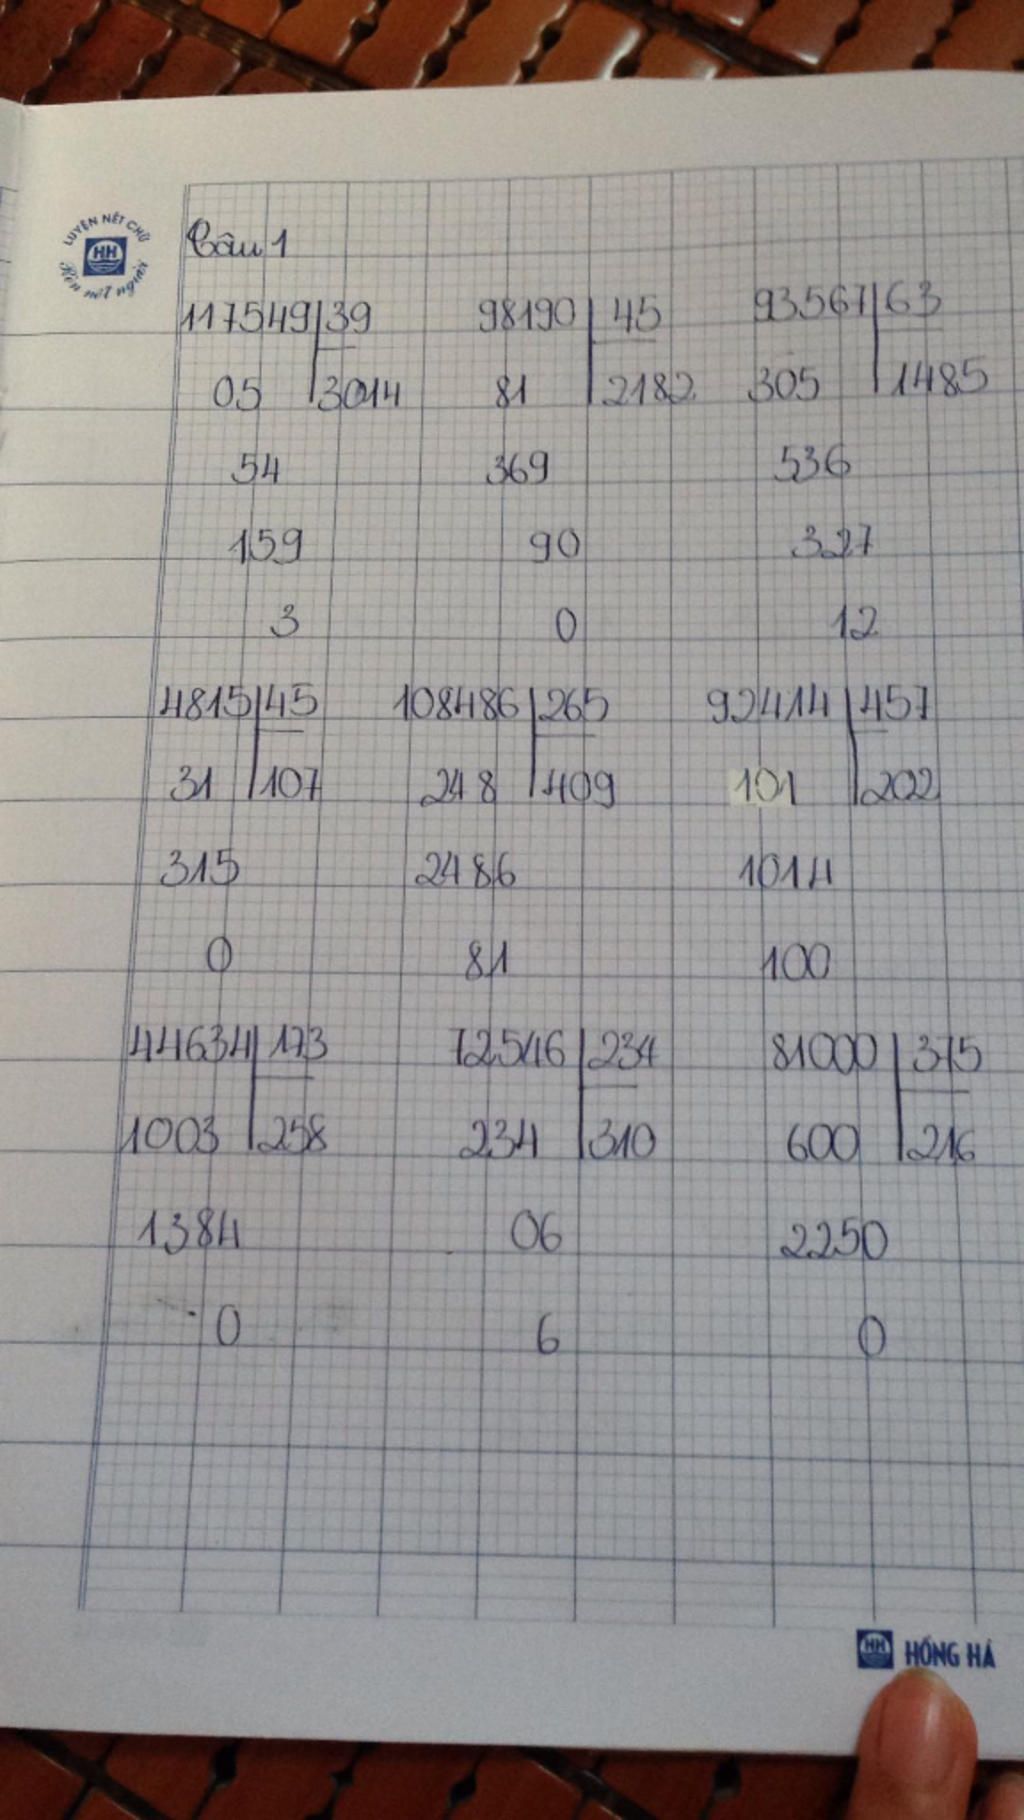 LUYỆN NÉT CHỮ
HH
Rèn nết người
Câu 1
117549 39 98190 45 93567 63
05 3014 81 2182 305 1485
54 369 536
159 90 327
3 0 12
4815 45 108486 265 92414 457
31 107 248 409 101 202
315 2486 1014
0 81 100
44634 173 72546 234 81000 375
1003 258 234 310 600 216
1384 06 2250
0 6 0
HH HỒNG HÀ